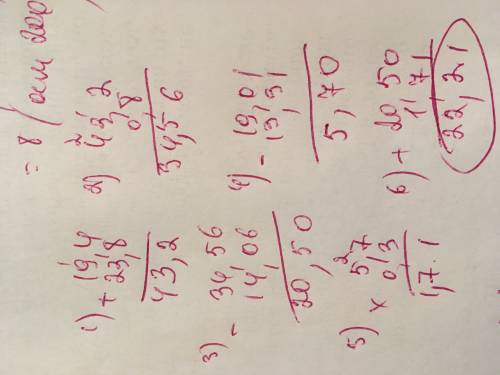 = 8 /
1) + 19,4
23,8
43,2
2) 43,2
0,8
34,56
3) - 34,56
14,06
20,50
4) - 19,01
13,31
5,70
5) x 5,7
0,3
1,71
6) + 20,50
1,71
22,21